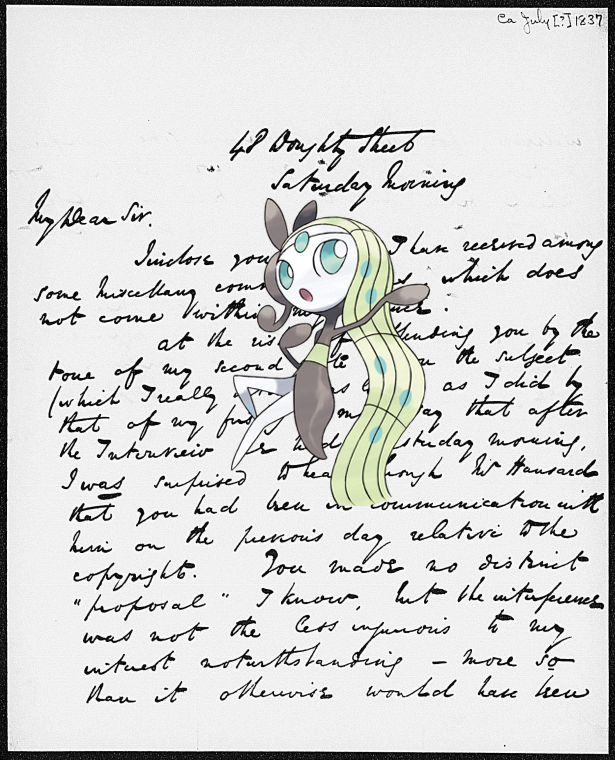 Ca July [?] 1837
48 Doughty Street
Saturday Morning
My Dear Sir.
I inclose you I have received among
some Miscellany which does
not come within
at the you by the
tone of my second the subject
(which I really as I did by
that of my that after
the Interview morning,
I was surprised Mr Hansard
that you had been in communication with
him on the previous day relative to the
copyright. You made no distinct
"proposal" I know, but the interference
was not the less injurious to my
interest notwithstanding – more so
than it otherwise would have been